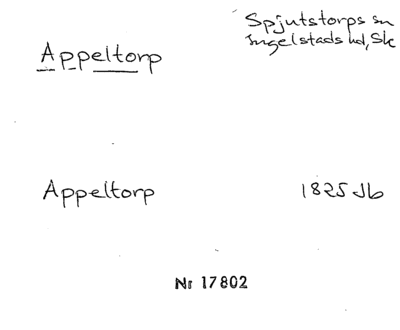 Spjutstorps sn
Ingelstads hd, Sk
Appeltorp
Appeltorp 1825 Jb
Nr 17802